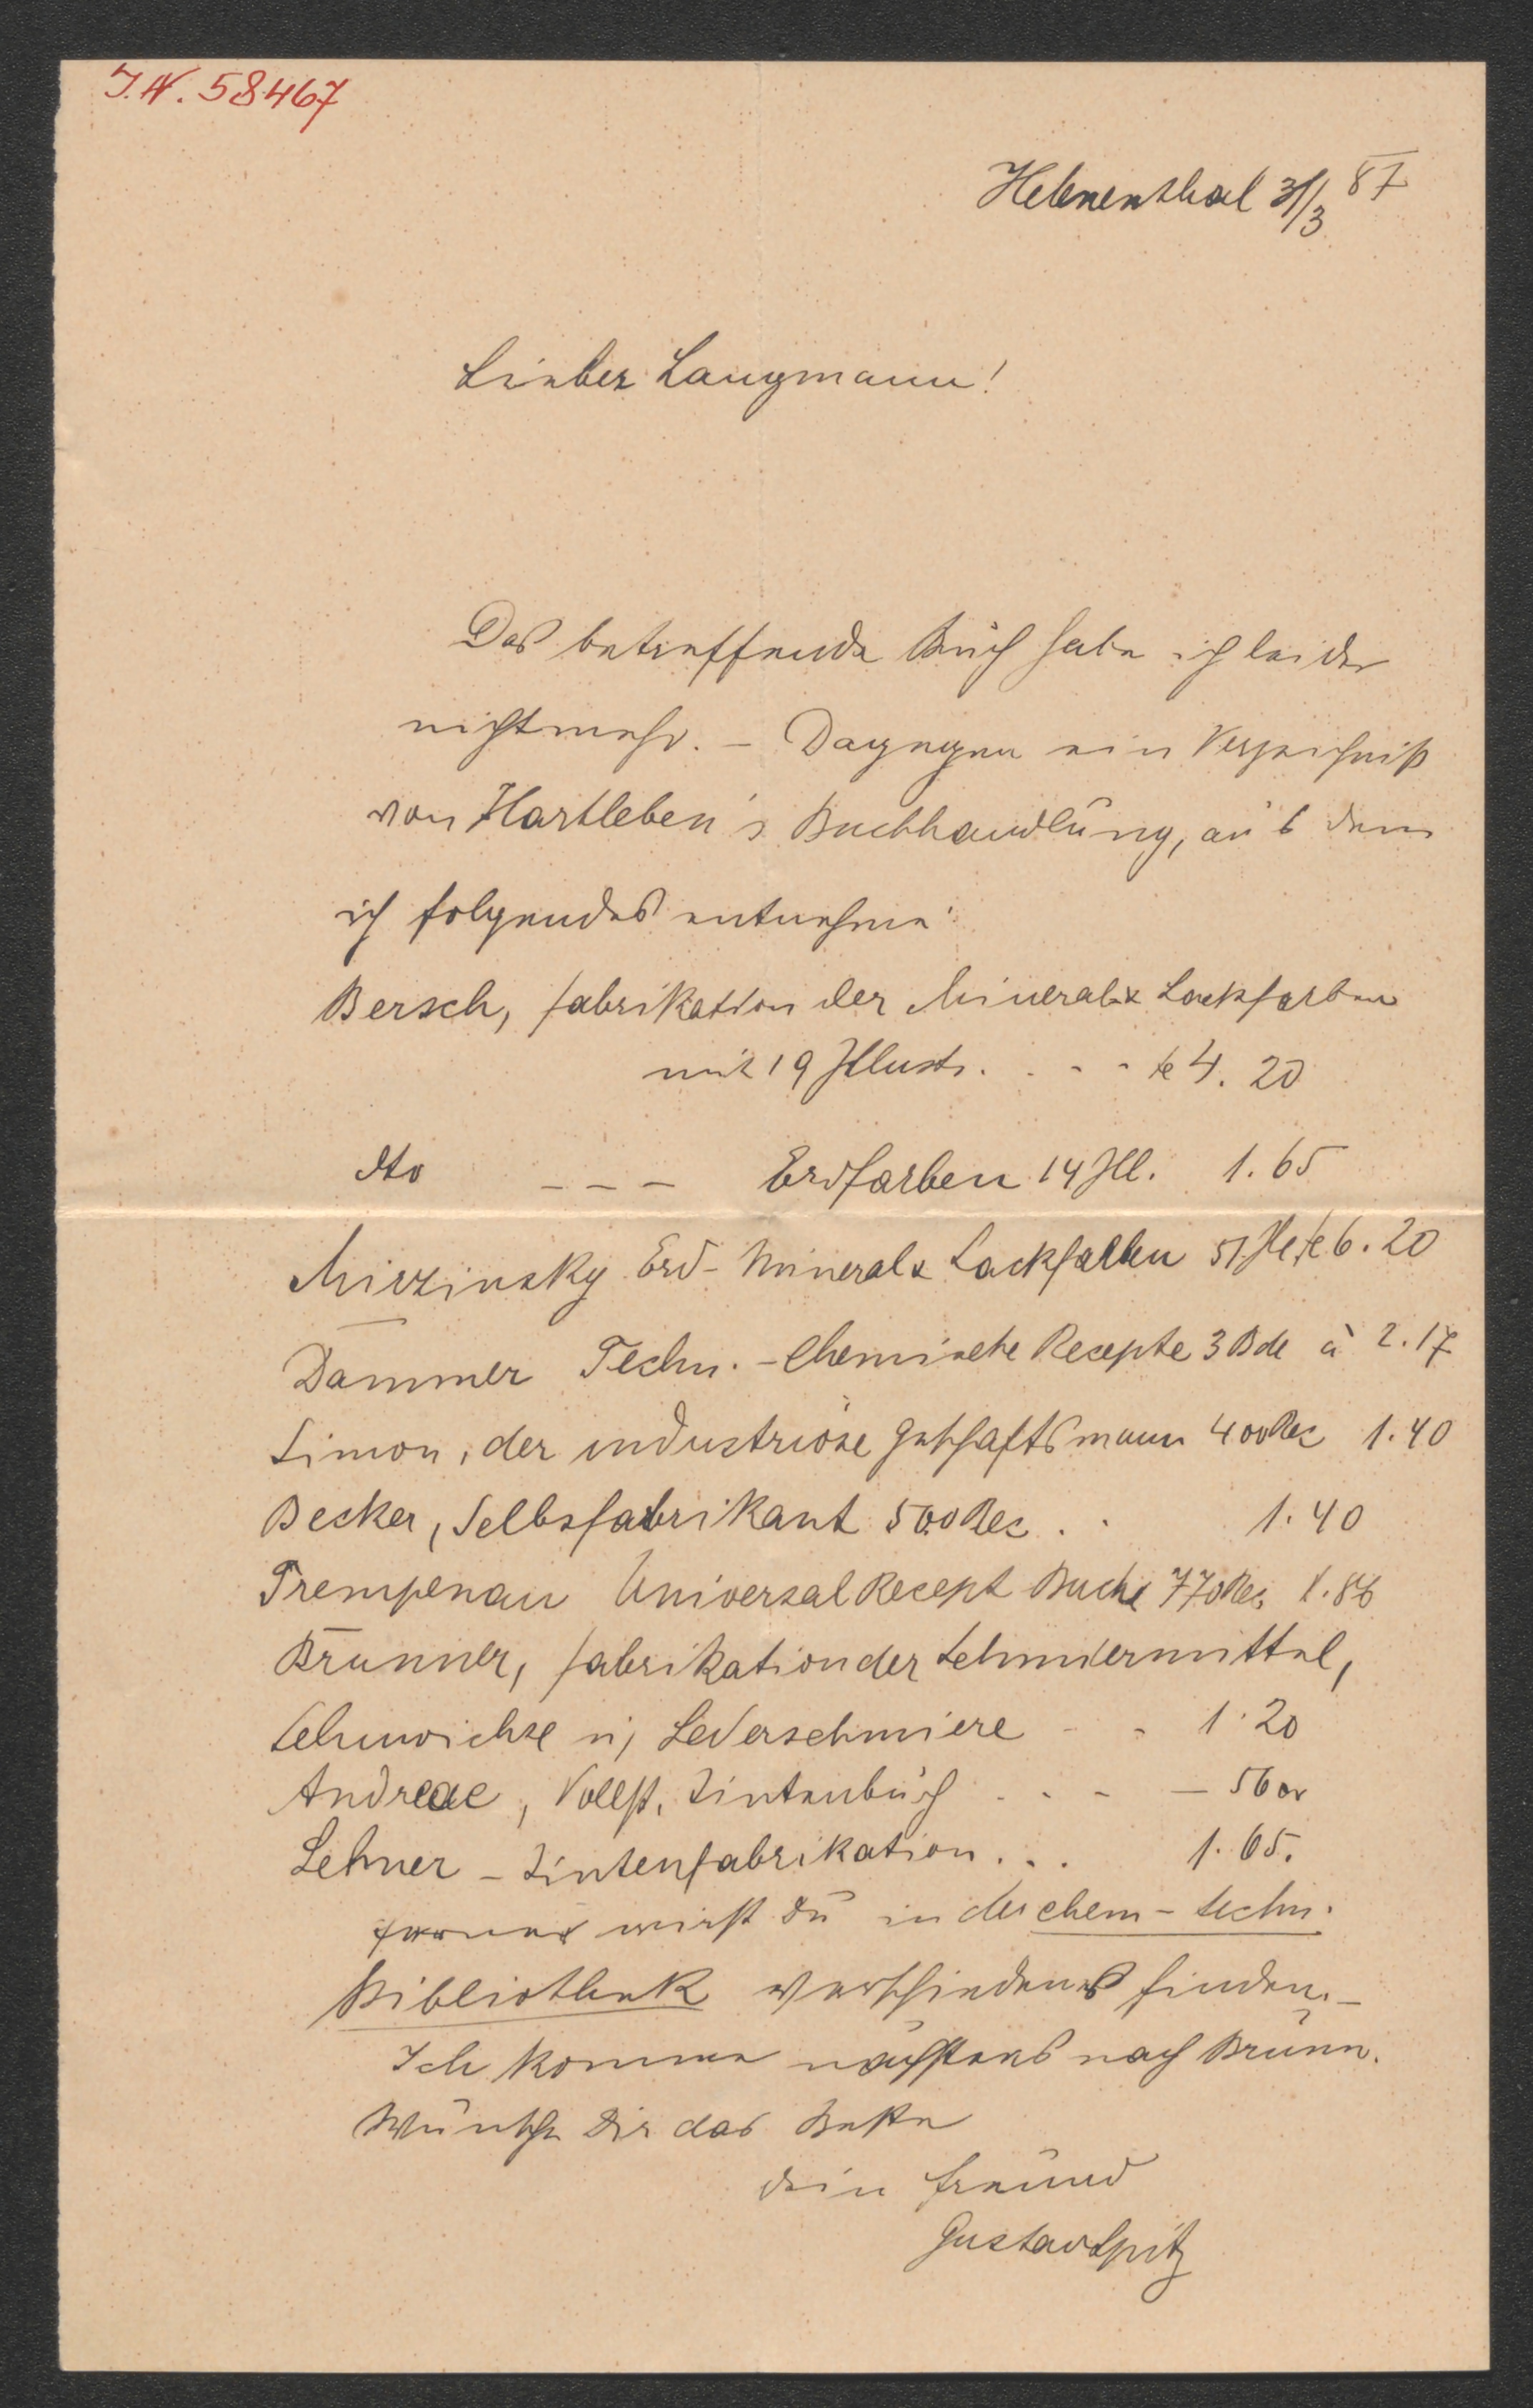 I.N. 58467
Helenenthal 31/3 87
Lieber Langmann!
Das betreffende Buch habe ich leider
nicht mehr. – Dagegen ein Verzeichniß
von Hartleben's Buchhandlung, aus dem
ich folgendes entnehme:
Bersch, Fabrikation der Mineral- & Lackfarben
mit 19 Illustr. . - - fl 4. 20
dto - - - Erdfarben 14 Ill. 1. 65
Mierzinsky Erd- Mineral & Lackfarben 51 Ill fl 6. 20
Dammer Techn. - Chemische Recepte 3 Bde à 2. 17
Simon, der industriöse Geschäftsmann 400 Rec 1. 40
Becker, Selbsfabrikant 500 Rec . . 1. 40
Trempenau Universal Recept Buch 770 Rec 1. 86
Brunner, Fabrikation der Schmiermittel,
Schuwichse u, Lederschmiere - - 1. 20
Andreae, Vollst. Tintenbuch . . - — 56
Lehner – Tintenfabrikation . . . 1. 65.
ferner wirst Du in der chem - techn.
Bibliothek verschiedenes finden. –
Ich komme nächstens nach Brünn.
Wünsche Dir das Beste
Dein Freund
Gustav Spitz